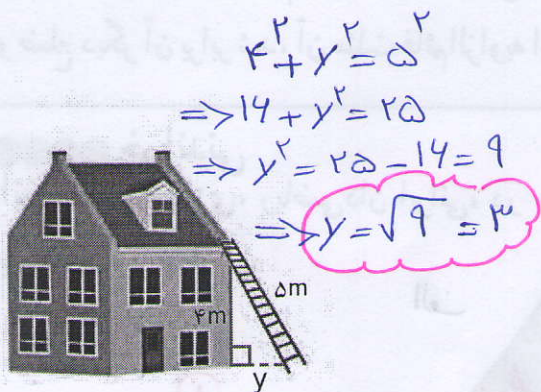 ۴^۲ + y^۲ = ۵^۲
=> ۱۶ + y^۲ = ۲۵
=> y^۲ = ۲۵ - ۱۶ = ۹
=> y = √۹ = ۳
۵m
۴m
y
الف